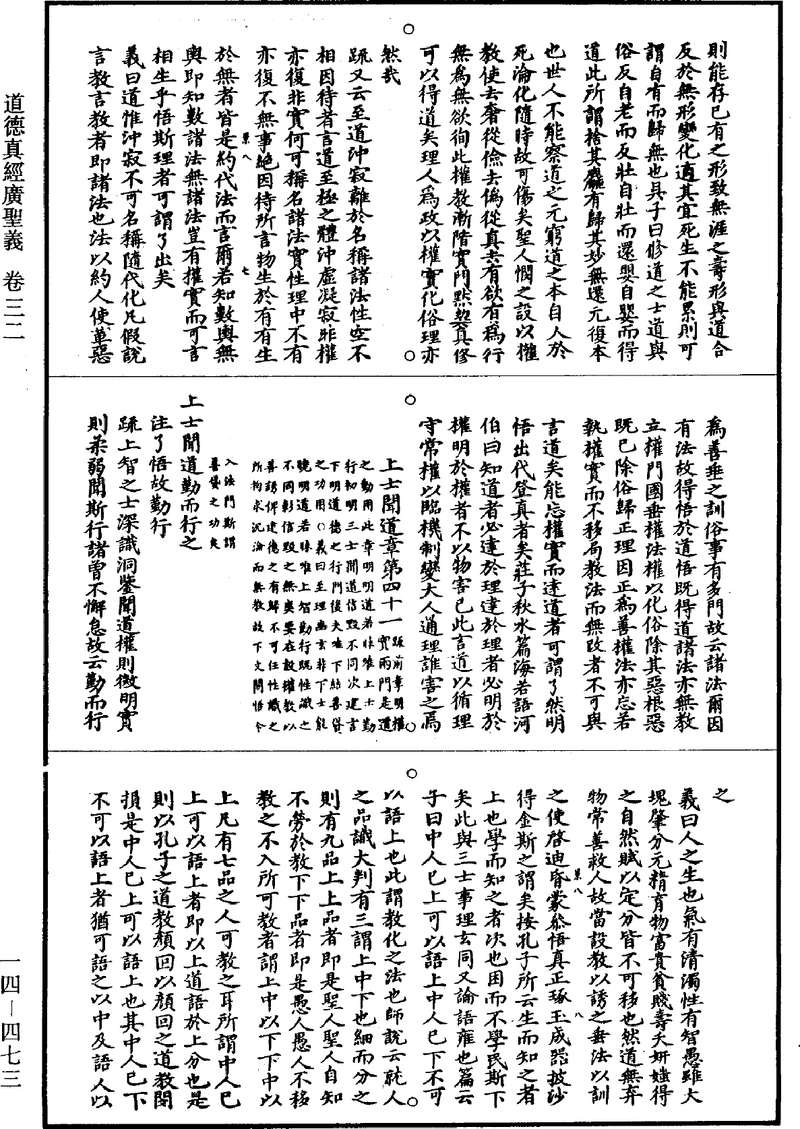 道德真經廣聖義　卷三二
一四—四七三
則能存已有之形致無涯之壽形與道合
反於無形變化適其宜死生不能累則可
謂自有而歸無也具子曰修道之士道與
俗反自老而反壯自壯而還嬰自嬰而得
道此所謂捨其麤有歸其妙無還元復本
也世人不能察道之元窮道之本自人於
死淪化隨時故可傷矣聖人憫之設以權
教使去奢從儉去偽從真去有欲有為行
無為無欲徇此權教漸階實門默契真修
可以得道矣理人為政以權實化俗理亦
然哉
疏又云至道沖寂離於名稱諸法性空不
相因待者言道至極之體沖虛凝寂非權
亦復非實何可稱名諸法實性理中不有
亦復不無事絕因待所言物生於有有生
景八　七
於無者皆是約代法而言爾若知數輿無
輿即知數諸法無諸法豈有權實而可言
相生乎悟斯理者可謂了出矣
義曰道惟沖寂不可名稱隨代化凡假說
言教言教者即諸法也法以約人使革惡
為善垂之訓俗事有多門故云諸法爾因
有法故得悟於道悟既得道諸法亦無教
立權門國垂權法權以化俗除其惡根惡
既已除俗歸正理因正為善權法亦忘若
執權實而不移局教法而無改者不可與
言道矣能忘權實而達道者可謂了然明
悟出代登真者矣莊子秋水篇海若語河
伯曰知道者必達於理達於理者必明於
權明於權者不以物害已此言道以循理
守常權以臨機制變大人通理誰害之焉
上士聞道章第四十一
疏前章明權
實兩門是道
之動用此章明明道若昧唯上士勤
行初明三士聞道信毀不同次建言
下明道德之行門復夫唯下結善貸
之功用○義曰至理幽玄非下士能
曉明道若昧唯上智勤行既性識之
不同彰信毀之無爽要在設權教以
善誘俾建德之有歸不可任性識之
所拘求沉淪而無教故下文開悟令
入法門斯謂
善貸之功矣
上士聞道勤而行之
注了悟故勤行
疏上智之士深識洞鑒聞道權則微明實
則柔弱聞斯行諸曾不懈怠故云勤而行
之
義曰人之生也氣有清濁性有智愚雖大
塊肇分元精育物富貴貧賤壽夭妍媸得
之自然賦以定分皆不可移也然道無棄
物常善救人故當設教以誘之垂法以訓
景八　八
之使啓迪昏蒙叅悟真正琢玉成器披沙
得金斯之謂矣按孔子所云生而知之者
上也學而知之者次也困而不學民斯下
矣此與三士事理玄同又論語雍也篇云
子曰中人已上可以語上中人已下不可
以語上也此謂教化之法也師說云就人
之品識大判有三謂上中下也細而分之
則有九品上上品者即是聖人聖人自知
不勞於教下下品者即是愚人愚人不移
教之不入所可教者謂上中以下下中以
上凡有七品之人可教之耳所謂中人已
上可以語上者即以上道語於上分也是
則以孔子之道教顏回以顏回之道教閔
損是中人已上可以語上也其中人已下
不可以語上者猶可語之以中及語人以